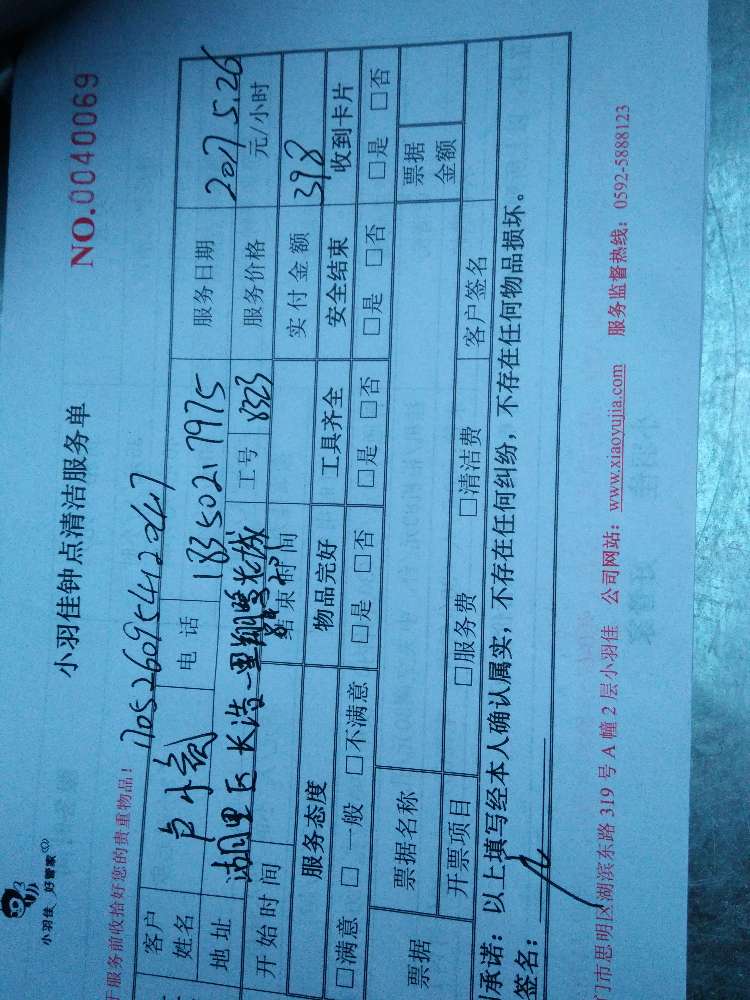 小羽佳 好管家
小羽佳钟点清洁服务单
NO.0040069
于服务前收拾好您的贵重物品!
客户姓名 电话 18350217975 服务日期 2017.5.26
地址 湖里区长浩一里 工号 8323 服务价格 元/小时
开始时间 结束时间 实付金额 398
服务态度 物品完好 工具齐全 安全结束 收到卡片
□满意 □一般 □不满意 □是 □否 □是 □否 □是 □否 □是 □否
票据 票据名称 票据金额
开票项目 □服务费 □清洁费 客户签名
承诺:以上填写经本人确认属实,不存在任何纠纷,不存在任何物品损坏。
签名:
门市思明区湖滨东路 319 号 A 幢 2 层小羽佳 公司网站:www.xiaoyujia.com 服务监督热线:0592-5888123